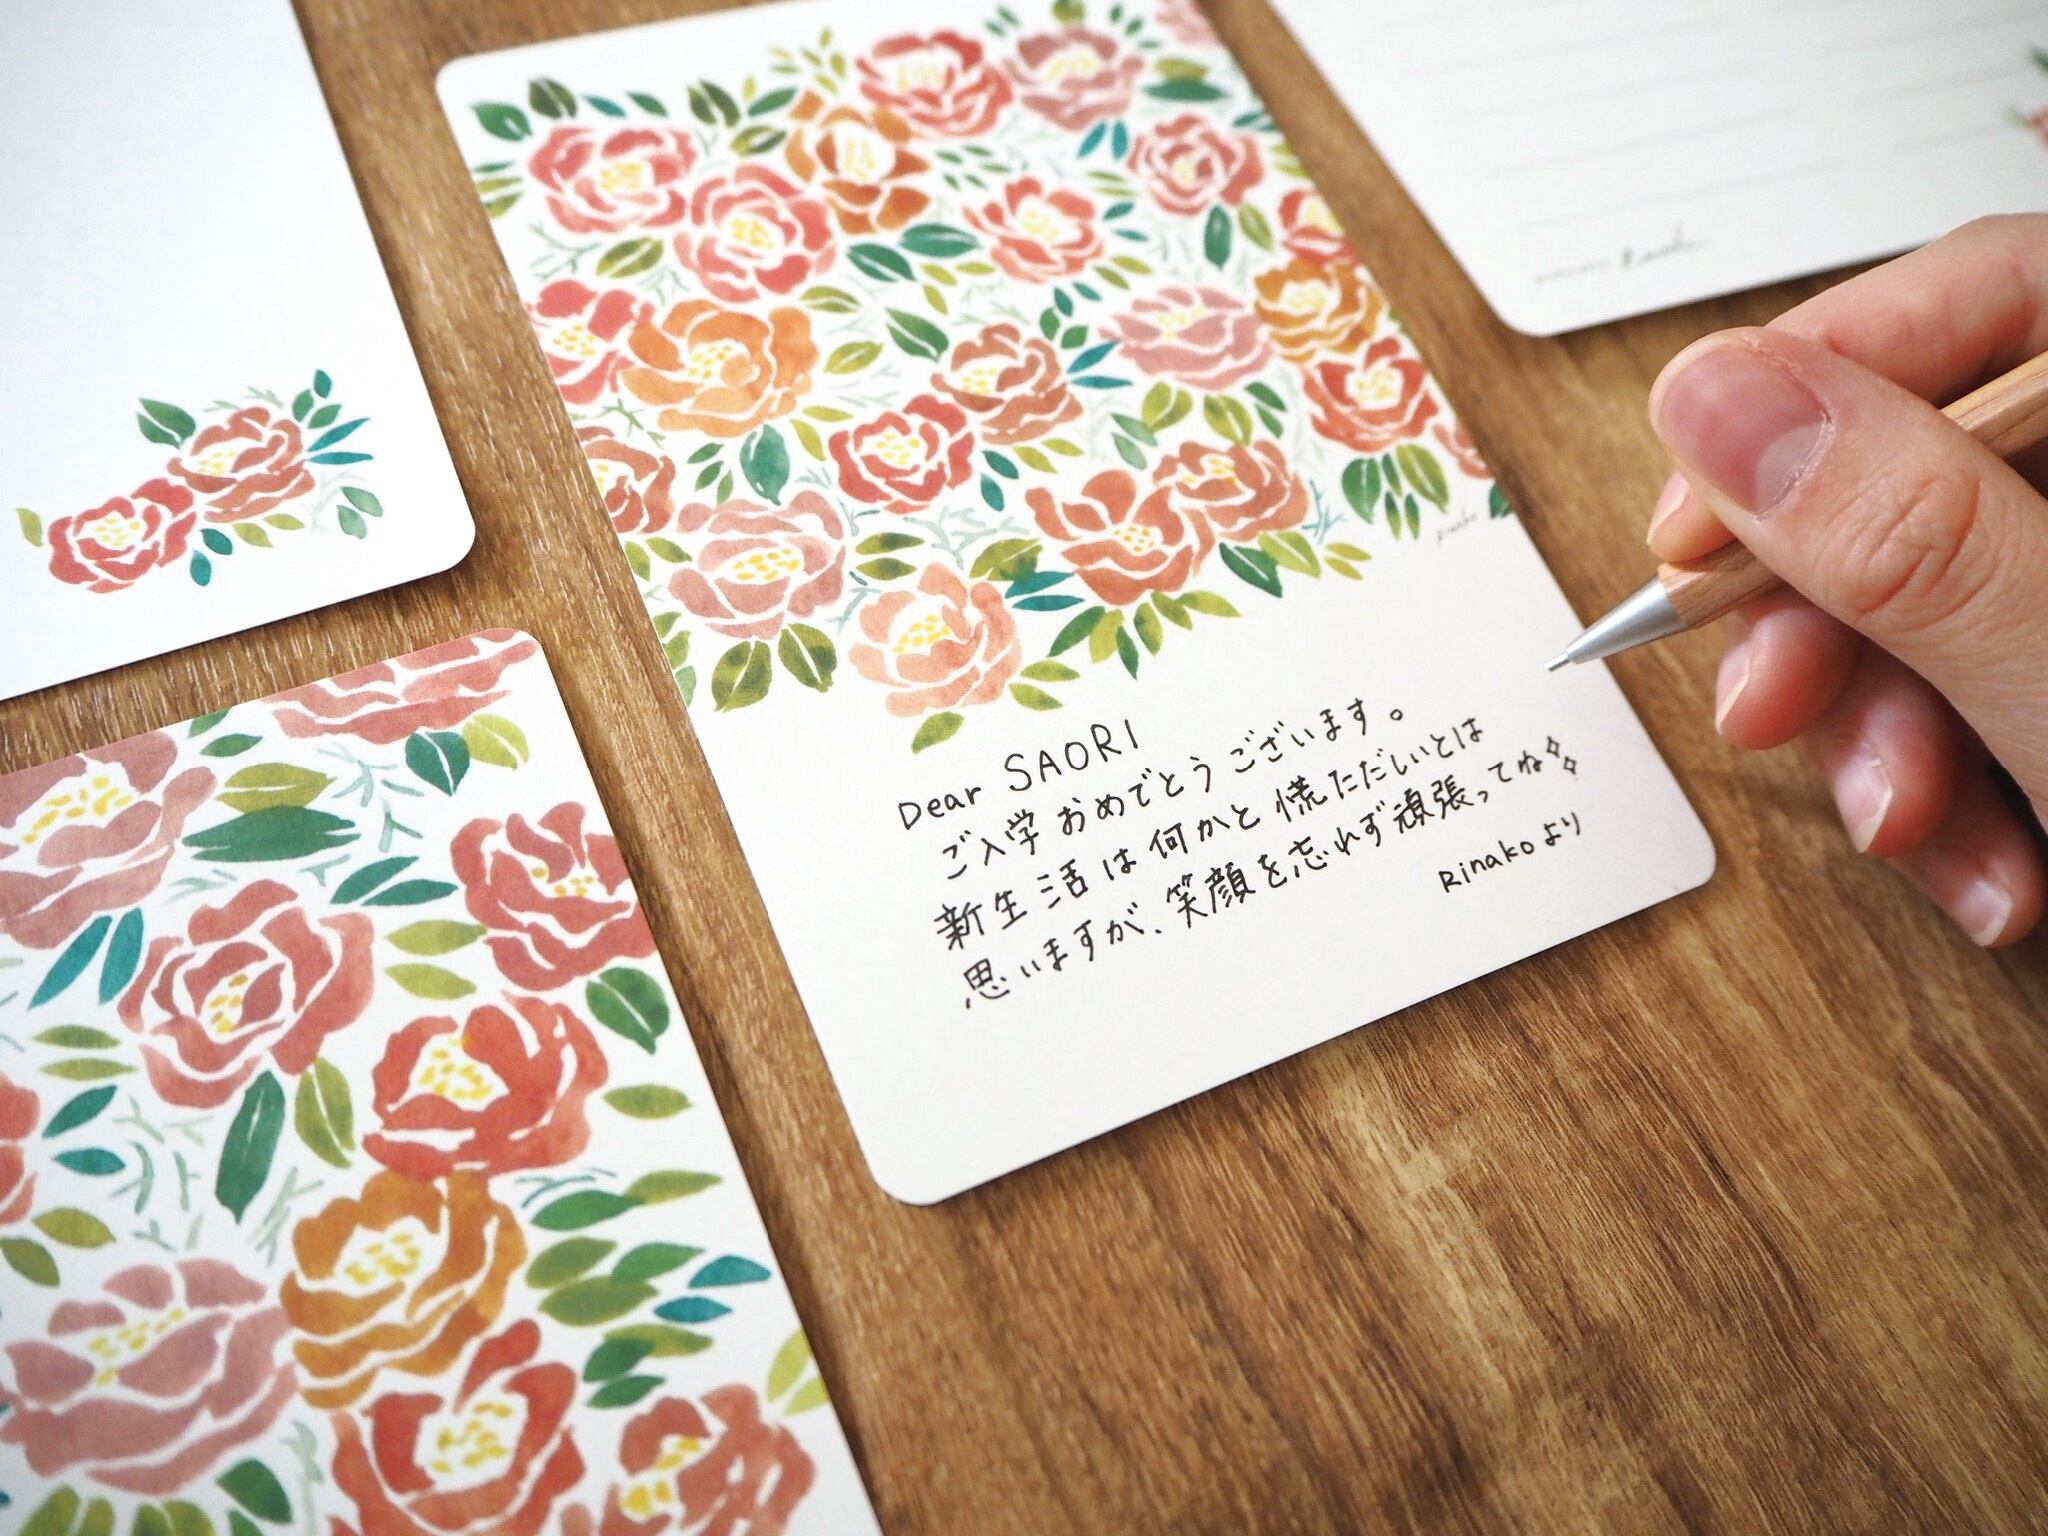 Rinako
Dear SAORI
ご入学おめでとうございます。
新生活は何かと慌ただしいとは
思いますが、笑顔を忘れず頑張ってね
Rinakoより